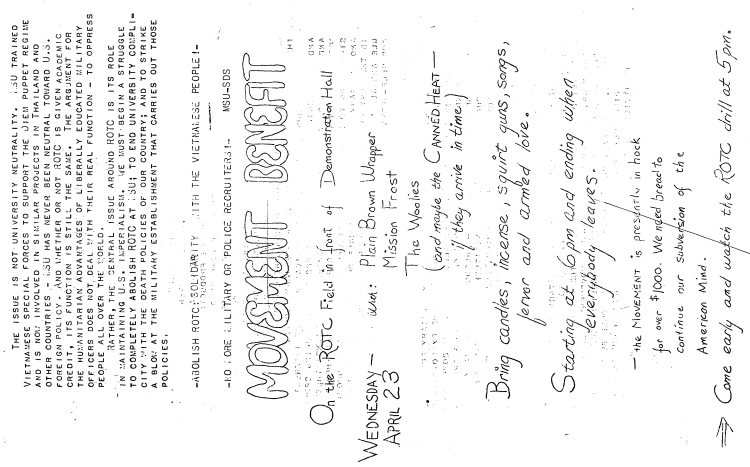 THE ISSUE IS NOT UNIVERSITY NEUTRALITY. MSU TRAINED
VIETNAMESE SPECIAL FORCES TO SUPPORT THE DIEM PUPPET REGIME
AND IS NOW INVOLVED IN SIMILAR PROJECTS IN THAILAND AND
OTHER COUNTRIES - MSU HAS NEVER BEEN NEUTRAL TOWARD U.S.
FOREIGN POLICY. AND WHETHER OR NOT ROTC IS GIVEN ACADEMIC
CREDIT, ITS FUNCTION IS STILL THE SAME. THE ARGUMENT FOR
THE HUMANITARIAN ADVANTAGES OF LIBERALLY EDUCATED MILITARY
OFFICERS DOES NOT DEAL WITH THEIR REAL FUNCTION - TO OPPRESS
PEOPLE ALL OVER THE WORLD.
RATHER, THE CENTRAL ISSUE AROUND ROTC IS ITS ROLE
IN MAINTAINING U.S. IMPERIALISM. WE MUST BEGIN A STRUGGLE
TO COMPLETELY ABOLISH ROTC AT MSU; TO END UNIVERSITY COMPLI-
CITY WITH THE DEATH POLICIES OF OUR COUNTRY; AND TO STRIKE
A BLOW AT THE MILITARY ESTABLISHMENT THAT CARRIES OUT THOSE
POLICIES.
-ABOLISH ROTC: SOLIDARITY WITH THE VIETNAMESE PEOPLE!-
-NO MORE MILITARY OR POLICE RECRUITERS!- MSU-SDS
MOVEMENT BENEFIT
On the ROTC Field in front of Demonstration Hall
WEDNESDAY — with: Plain Brown Wrapper
APRIL 23 Mission Frost
The Woolies
(and maybe the CANNED HEAT —
if they arrive in time)
Bring candles, incense, squirt guns, songs,
fervor and armed love.
Starting at 6pm and ending when
everybody leaves.
— the MOVEMENT is presently in hock
for over $1000. We need bread to
continue our subversion of the
American Mind.
⇒ Come early and watch the ROTC drill at 5pm.